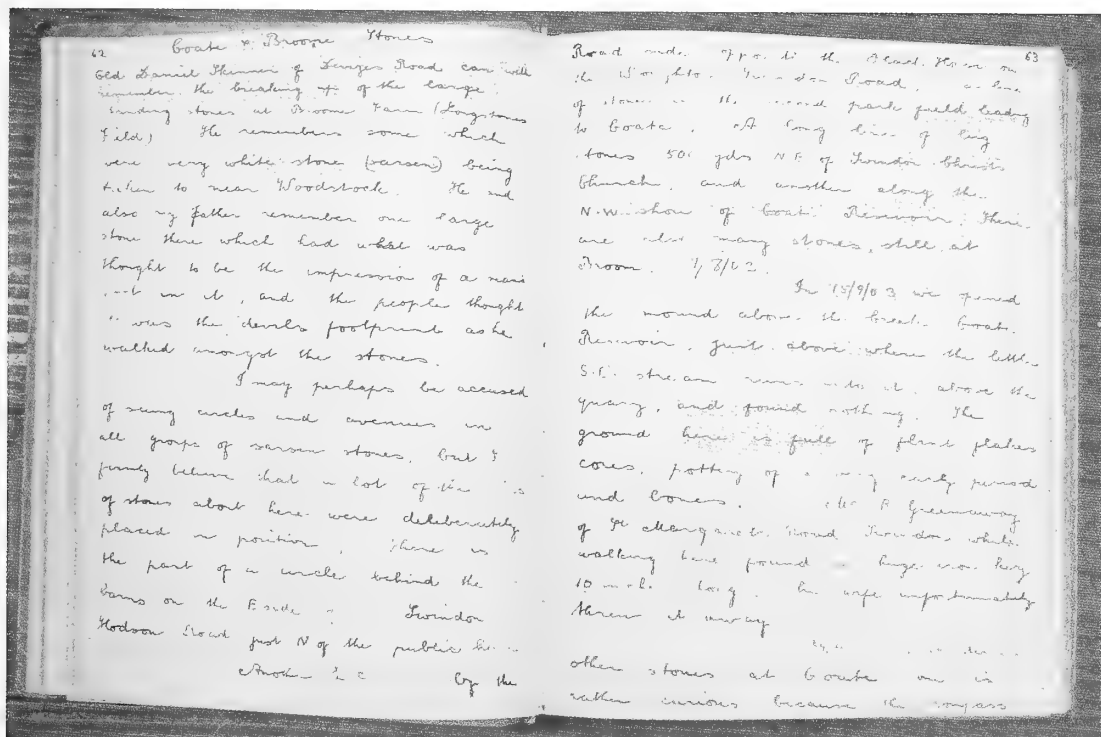 62
Coate & Broome Stones
Old Daniel Skinner of Devizes Road can well
remember the breaking up of the large
standing stones at Broome Farm (Longstones
Field) He remembers some which
were very white stone (sarsen) being
taken to near Woodstock. He and
also my father remember one large
stone there which had what was
thought to be the impression of a mans
in it, and the people thought
it was the devils footprint as he
walked amongst the stones.
I may perhaps be accused
of seeing circles and avenues in
all groups of sarsen stones, but I
firmly believe that a lot of the
of stones about here were deliberately
placed in position. There is
the part of a circle behind the
barns on the E side Swindon
Hodson Road just N of the public
Another by the
63
Road side opposite the on
the Road, a line
of stones in the second park field leading
to Coate. A long line of big
stones 500 yds N.E. of Swindon Christ
Church, and another along the
N.W. shore of Coate Reservoir. There
are also many stones, still at
Broom.
In 15/9/03 we opened
the mound above the Coate
Reservoir, just above where the little
S.E. stream runs into it, above the
quarry, and found nothing. The
ground here is full of flint flakes
cores, pottery of a very early period
and bones. Greenaway
of St Margarets Road Swindon while
walking here found a huge iron key
10 inch long. his wife unfortunately
threw it away
other stones at Coate one is
rather curious because the compass